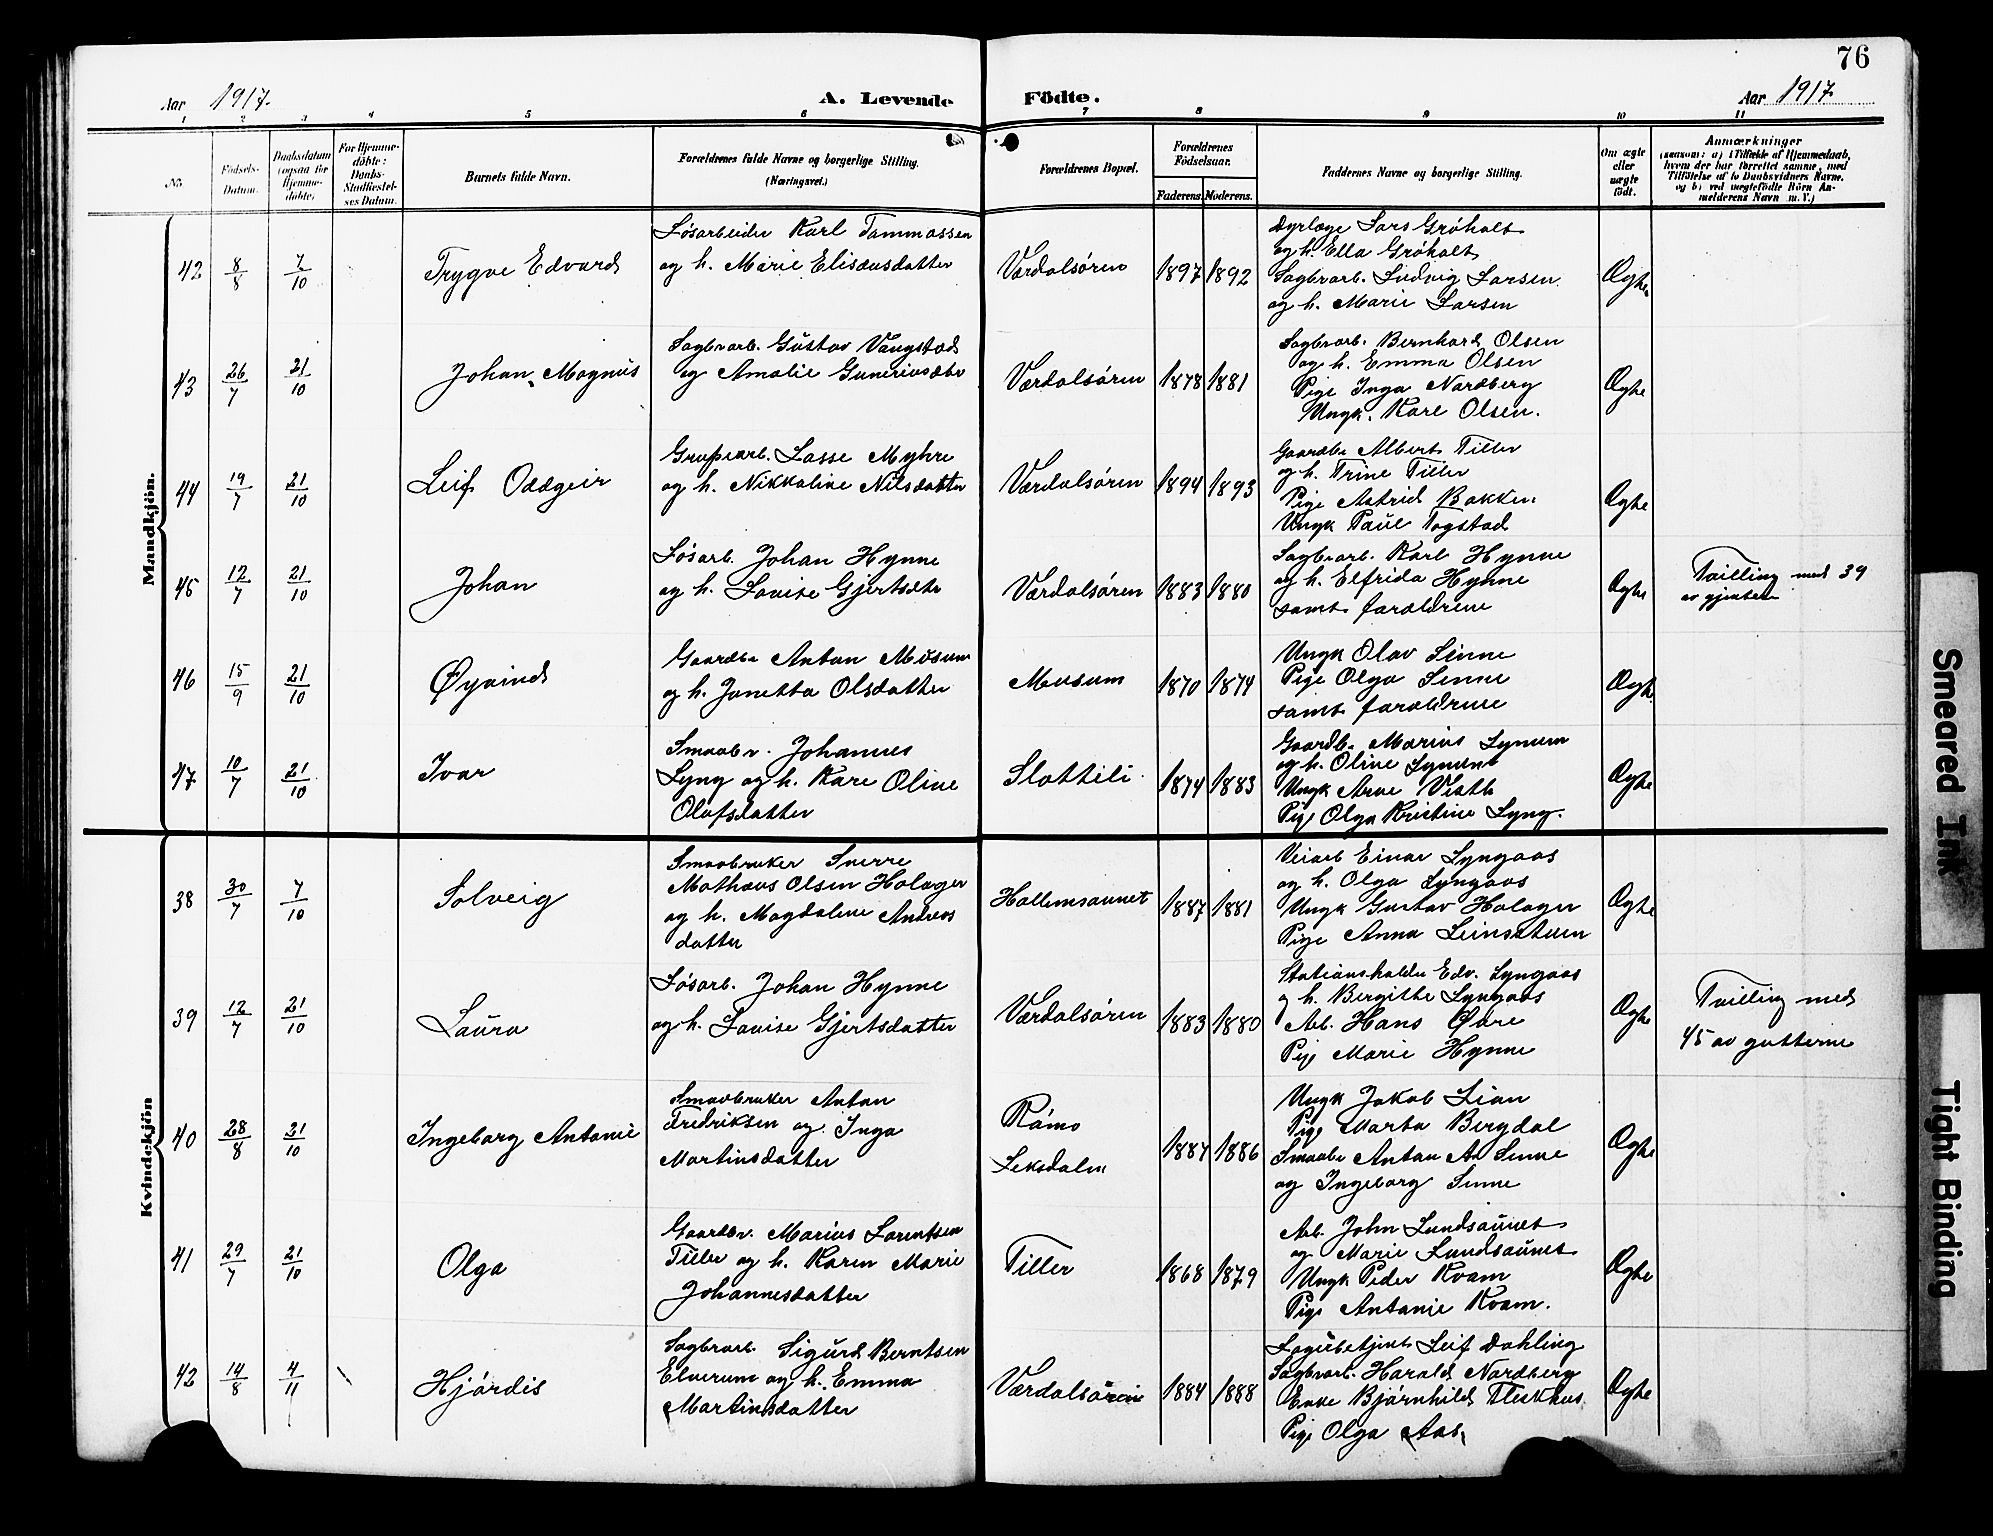 76
Aar 1917.
A. Levende Födte.
Aar 1917
1 2 3 4 5 6 7 8 9 10 11
No.
Födsels-Datum.
Daabsdatum (ogsaa for Hjemme-döbte)
For Hjemme-döbte: Daabs-Stadfæstel-ses Datum.
Barnets fulde Navn.
Forældrenes fulde Navne og borgerlige Stilling.
(Næringsvei.)
Forældrenes Bopæl.
Forældrenes Födselsaar.
Faderens. Moderens.
Faddernes Navne og borgerlige Stilling.
Om ægte eller uægte födt.
Anmærkninger
(saasom: a) i Tilfælde af Hjemmedaab, hvem der har forrettet samme, med Tilföielse af to Daabsvidners Navne, og b) ved uægtefödte Börn An-melderens Navn m. V.)
Mandkjön.
42 8/8 7/10 Trygve Edvard
Løsarbeider Karl Tommassen
og h. Marie Elisæusdatter
Værdalsøren 1897 1892
Dyrlæge Lars Grøholt
og h. Ella Grøholt
Sagbrarb. Ludvig Larsen
og h. Marie Larsen
Ægte
43 26/7 21/10 Johan Magnus
Sagbrarb. Gustav Vangstad
og Amalie Guneriusdtr
Værdalsøren 1878 1881
Sagbrarb. Bernhard Olsen
og h. Emma Olsen
Pige Inga Nordberg
Ungk. Karl Olsen.
Ægte
44 19/7 21/10 Leif Oddgeir
Grubearb. Lasse Myhre
og h. Nikkoline Nilsdatter
Værdalsøren 1894 1893
Gaardbr Albert Tiller
og h. Trine Tiller
Pige Astrid Bakken
Ungk Paul Togstad
Ægte
45 12/7 21/10 Johan
Løsarb. Johan Hynne
og h. Lovise Gjertsdtr
Værdalsøren 1883 1880
Sagbrarb. Karl Hynne
og h. Elfrida Hynne
samt forældrene
Ægte
Tvilling med 39
av gjentene
46 15/9 21/10 Øyvind
Gaardbr Anton Musum
og h. Jonetta Olsdatter
Musum 1870 1874
Ungk Olav Sinne
Pige Olga Sinne
samt forældrene
Ægte
47 10/7 21/10 Ivar
Smaabr. Johannes
Lyng og h. Kare Oline
Olafsdatter
Slottili 1874 1883
Gaardb. Marius Lynum
og h. Oline Lynum
Ungk Arne Vistb
Pige Olga Kristine Lyng.
Ægte
Kvindekjön
38 30/7 7/10 Solveig
Smaabruker Sverre
Mathæus Olsen Holager
og h. Magdalene Andreas
datter
Hallemsaunet 1887 1881
Veiarb Einar Lyngaas
og h. Olga Lyngaas
Ungk Gustav Holager
Pige Anna Leinsetuen
Ægte
39 12/7 21/10 Laura
Løsarb. Johan Hynne
og h. Lovise Gjertsdatter
Værdalsøren 1883 1880
Stationsholder Edv. Lyngaas
og h. Bergithe Lyngaas
Arb. Hans Øvre
Pige Marie Hynne
Ægte
Tvilling med
45 av gutterne
40 28/8 21/10 Ingeborg Antonie
Smaabruker Anton
Fredriksen og Inga
Martinsdatter
Råmo
Leksdalen
1887 1886
Ungk Jakob Lian
Pige Marta Bergdal
Smaabr Anton A. Sinne
og Ingeborg Sinne
Ægte
41 29/7 21/10 Olga
Gaardbr. Marius Lorentsen
Tiller og h. Karen Marie
Johannesdatter
Tiller 1868 1879
Arb. John Lundsaunet
og Marie Lundsaunet
Ungk Peder Kvam
Pige Antonie Kvam.
Ægte
42 14/8 4/11 Hjørdis
Sagbrarb. Sigurd Berntsen
Elverum og h. Emma
Martinsdatter
Værdalsøren 1884 1888
Lagerbetjent Leif Dahling
Sagbrarb. Harald Nordberg
Enke Bjørnhild Fleskhus
Pige Olga Aas
Ægte
Smeared Ink
Tight Binding